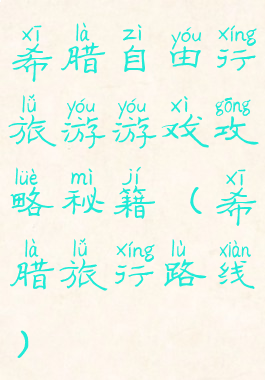 xī là zì yóu xíng
希腊自由行
lǚ yóu yóu xì gōng
旅游游戏攻
lüè mì jí xī
略秘籍(希
là lǚ xíng lù xiàn
腊旅行路线
)